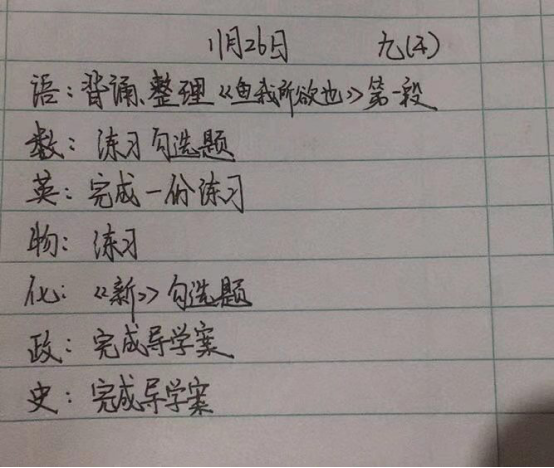 11月26日 九(4)
语：背诵、整理《鱼我所欲也》第一段
数：练习勾选题
英：完成一份练习
物：练习
化：《新》勾选题
政：完成导学案
史：完成导学案